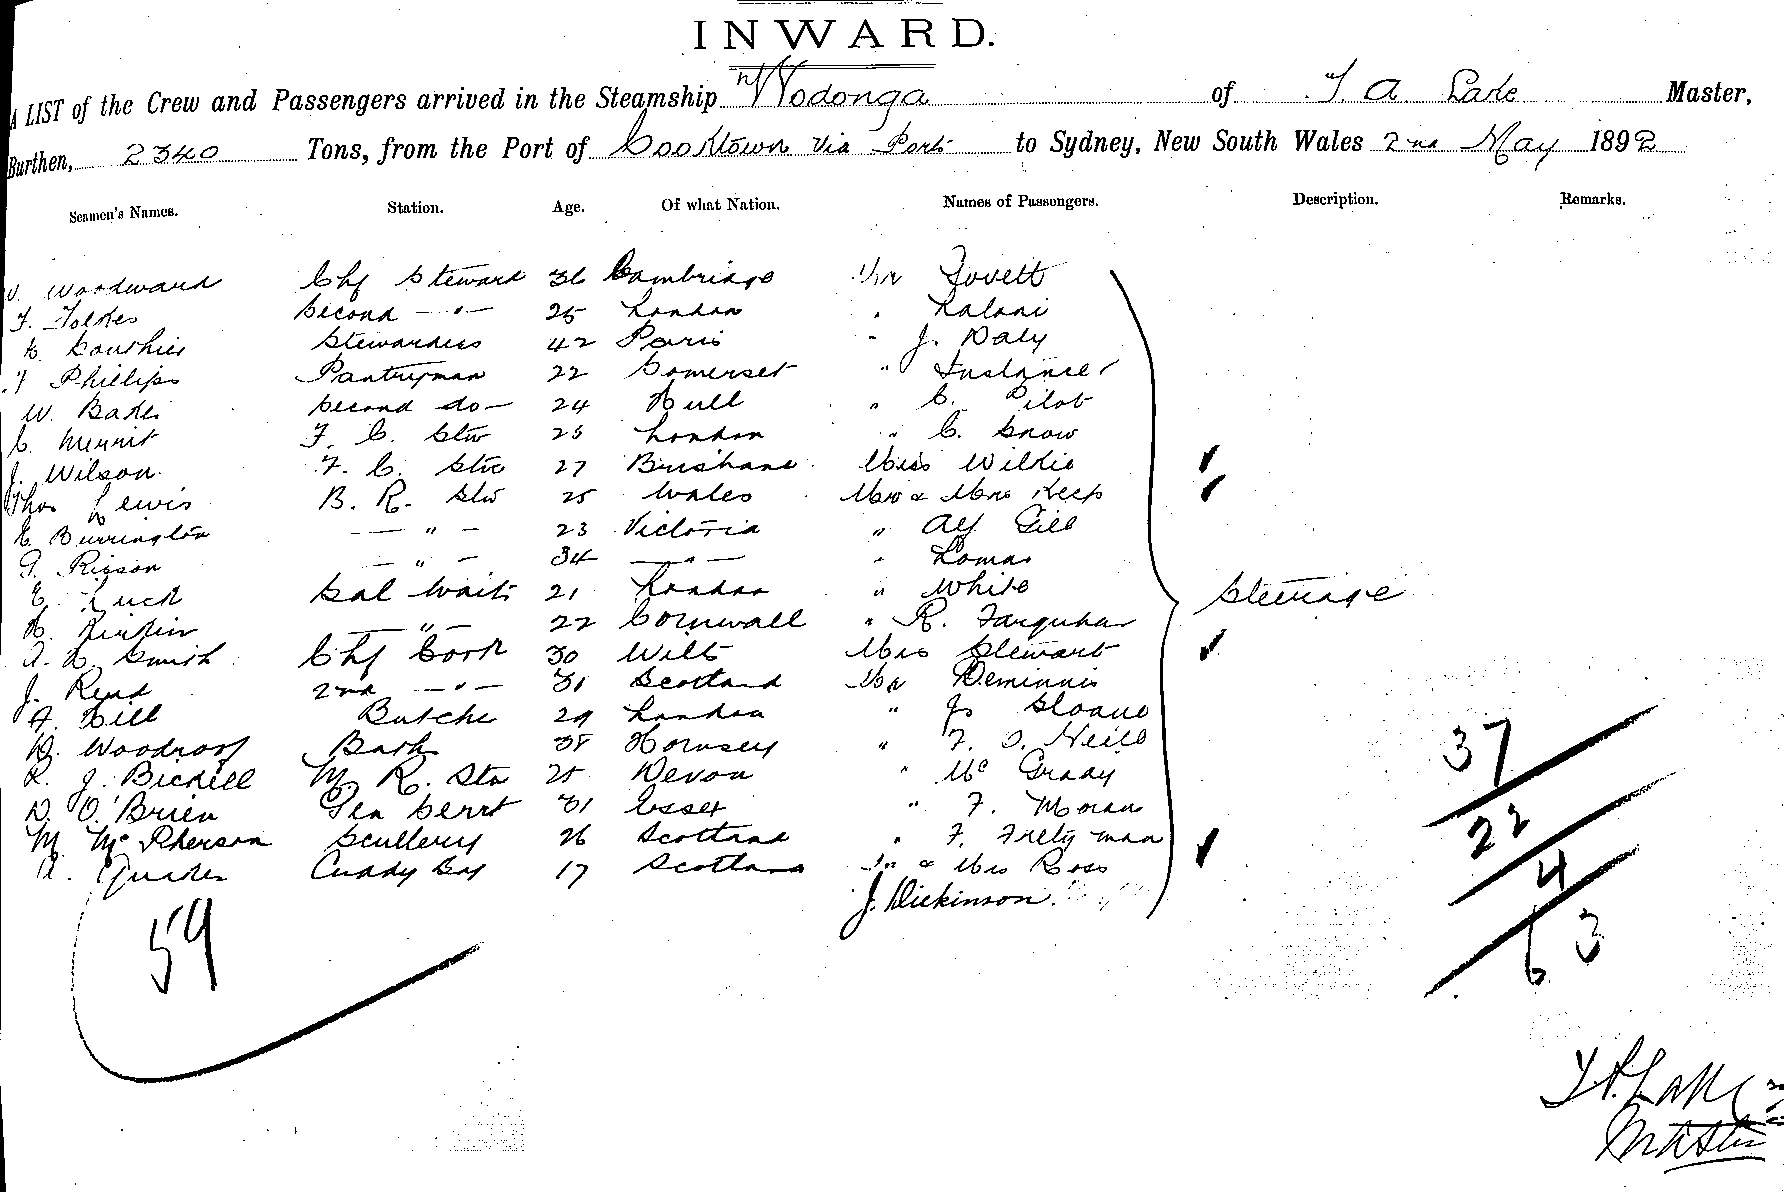 INWARD.
A LIST of the Crew and Passengers arrived in the Steamship "Wodonga of T. A. Lake Master,
Burthen, 2340 Tons, from the Port of Cooktown via Ports to Sydney, New South Wales 2nd May 1892
Seamen's Names. Station. Age. Of what Nation. Names of Passengers. Description. Remarks.
Woodward Chf Steward 36 Cambridge Mr Lovett
F. Second —"— 25 London " Kalani
Stewardess 42 Paris " J. Daly
Phillips Pantryman 22 Somerset "
W. Second do— 24 Hull " C. Pilot
C. Merrit F. C. Stw 25 London " C. Snow
J. Wilson F. C. Stw 27 Brisbane Miss Wilkie
Thos Lewis B. R. Stw 25 Wales Mr & Mrs Keep
E. Burrington —"— 23 Victoria " Alf Gill
—"— 34 —"— " Lomas
E. Luck Sal Waitr 21 London " White
—"— 22 Cornwall " R. Farquhar
A. L. Smith Chf Cook 30 Wilts Mrs Stewart
J. 2nd —"— 31 Scotland Mr
Hill Butcher 29 London " Sloane
Woodroof 38 Hornsey " F. O'Neill
R. J. Bickell M. R. Stw 25 Devon " Mc Grady
D. O'Brien Gen Servt 31 Essex " F. Moran
M. McPherson Scullery 26 Scotland " F. Fretyman
Cuddy Boy 17 Scotland Mr & Mrs Ross
J. Dickinson.
Steerage
59
37
22
4
63
T A. Lake
Master